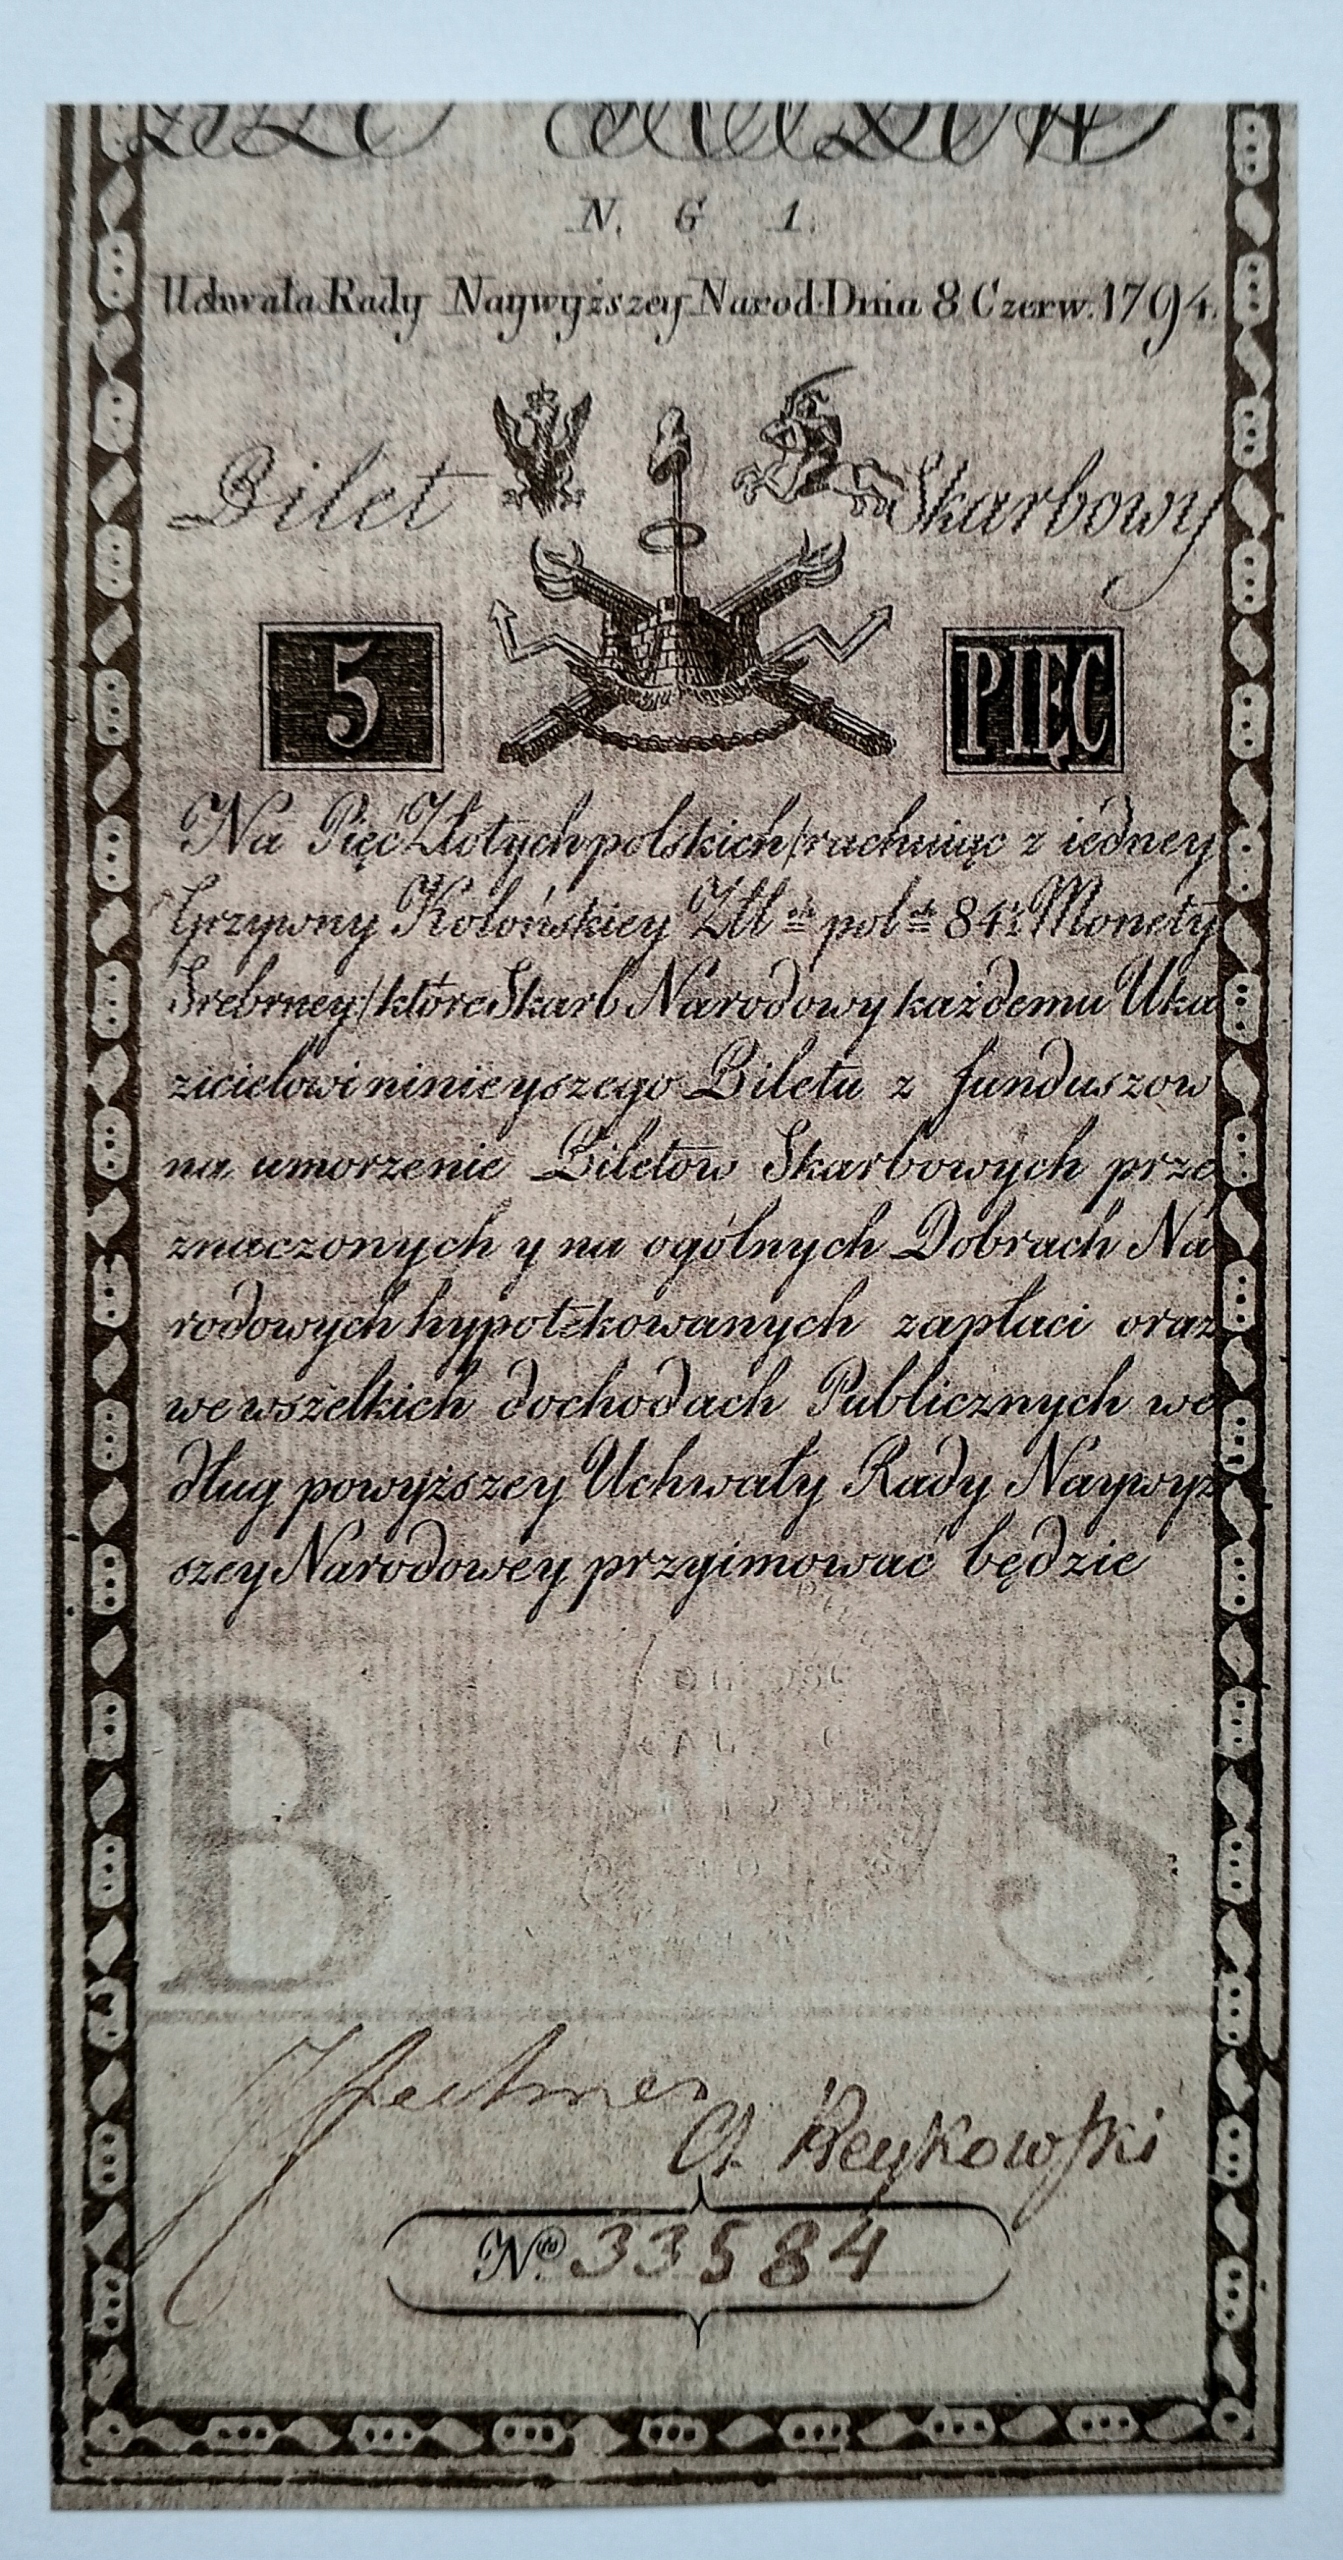 N. G 1.
Uchwała Rady Naywyższey Narod. Dnia 8 Czerw. 1794.
Bilet Skarbowy
5 PIĘĆ
Na Pięć Złotych polskich/rachuiąc z iedney
Grzywny Kolońskiey Złł ch pol ch 84½ Monety
Srebrney/które Skarb Narodowy każdemu Uka
zicielowi ninieyszego Biletu z funduszow
na umorzenie Biletow Skarbowych prze
znaczonych y na ogólnych Dobrach Na
rodowych hypotekowanych zapłaci oraz
we wszelkich dochodach Publicznych we
dług powyższey Uchwały Rady Naywyż
szey Narodowey przyimować będzie
B S
A. Reykowski
No. 33584